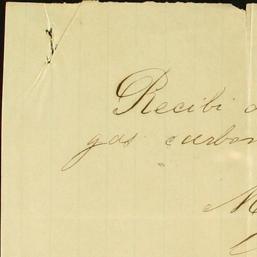 Recibi
gas carbon